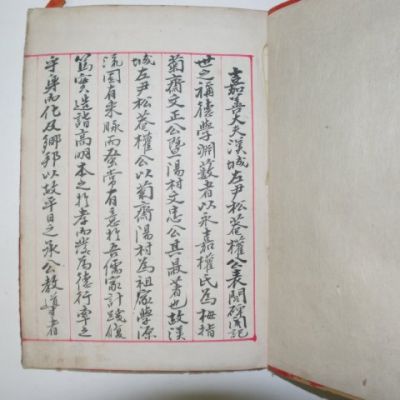 嘉善大夫漢城左尹松菴權公表閭碑閣記
世之稱德學淵藪者以永嘉權氏為拇指
菊齋文正公暨陽村文忠公其最著也故漢
城左尹松菴權公以菊齋陽村為祖家學源
流固有來脉而常有意於吾儒家計踐履
篤實造詣高明本之於孝而學為德行率之
而化及鄉邦以故平日之承公教導者